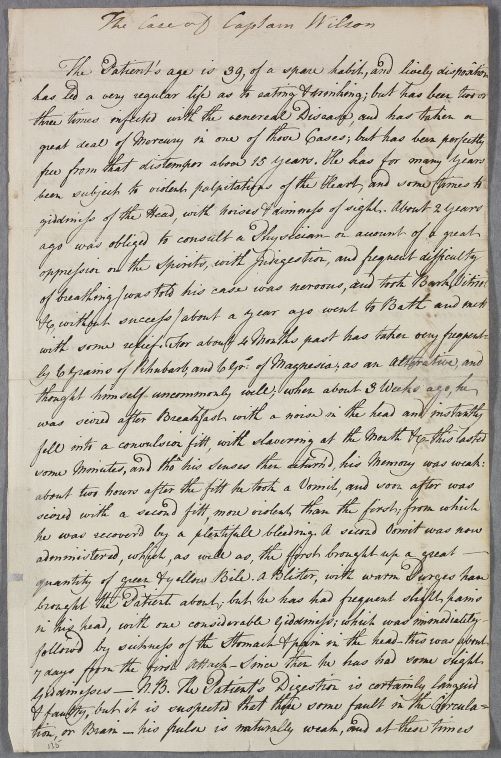 The Case of Captain Wilson
The Patient's age is 39, of a spare habit, and lively disposition
has led a very regular life as to eating & drinking; but has been two or
three times infected with the venereal Disease, and has taken a
great deal of Mercury in one of those Cases; but has been perfectly
free from that distemper above 15 years. He has for many years
been subject to violent palpitations of the Heart, and some times to
giddiness of the Head, with noises & dimness of sight. About 2 years
ago was obliged to consult a Physician on account of a great
oppression on the spirits, with Indigestion, and frequent difficulty
of breathing/ was told his case was nervous, and took Bark, Vitriol
&c, without success/ about a year ago went to Bath and met
with some relief. For about 4 Months past has taken very frequent-
ly 6 grams of Rhubarb, and 6 grs. of Magnesia; as an alterative, and
thought himself uncommonly well; when about 3 Weeks ago he
was seized after Breakfast, with a noise in the head and instantly
fell into a convulsion fitt with slavering at the Mouth &c this lasted
some Minutes, and tho' his senses then return'd, his Memory was weak:
about two hours after the fitt he took a Vomit, and soon after was
seized with a second fitt, more violent than the first; from which
he was recover'd by a plentifull bleeding. A second Vomit was now
administered, which, as well as, the first brought up a great —
quantity of green & yellow Bile. A Blister, with warm Purges have
brought the Patient about; but he has had frequent slight pains
in his head, with one considerable Giddiness; which was immediatly
followed by sickness of the Stomach & pain in the head - this was about
7 days from the first Attack - Since then he has had some slight
Giddinesses — N.B. The Patient's Digestion is certainly languid
& faulty, but it is suspected that there some fault in the Circula-
tion, or Brain — his pulse is naturally weak, and at these times
135